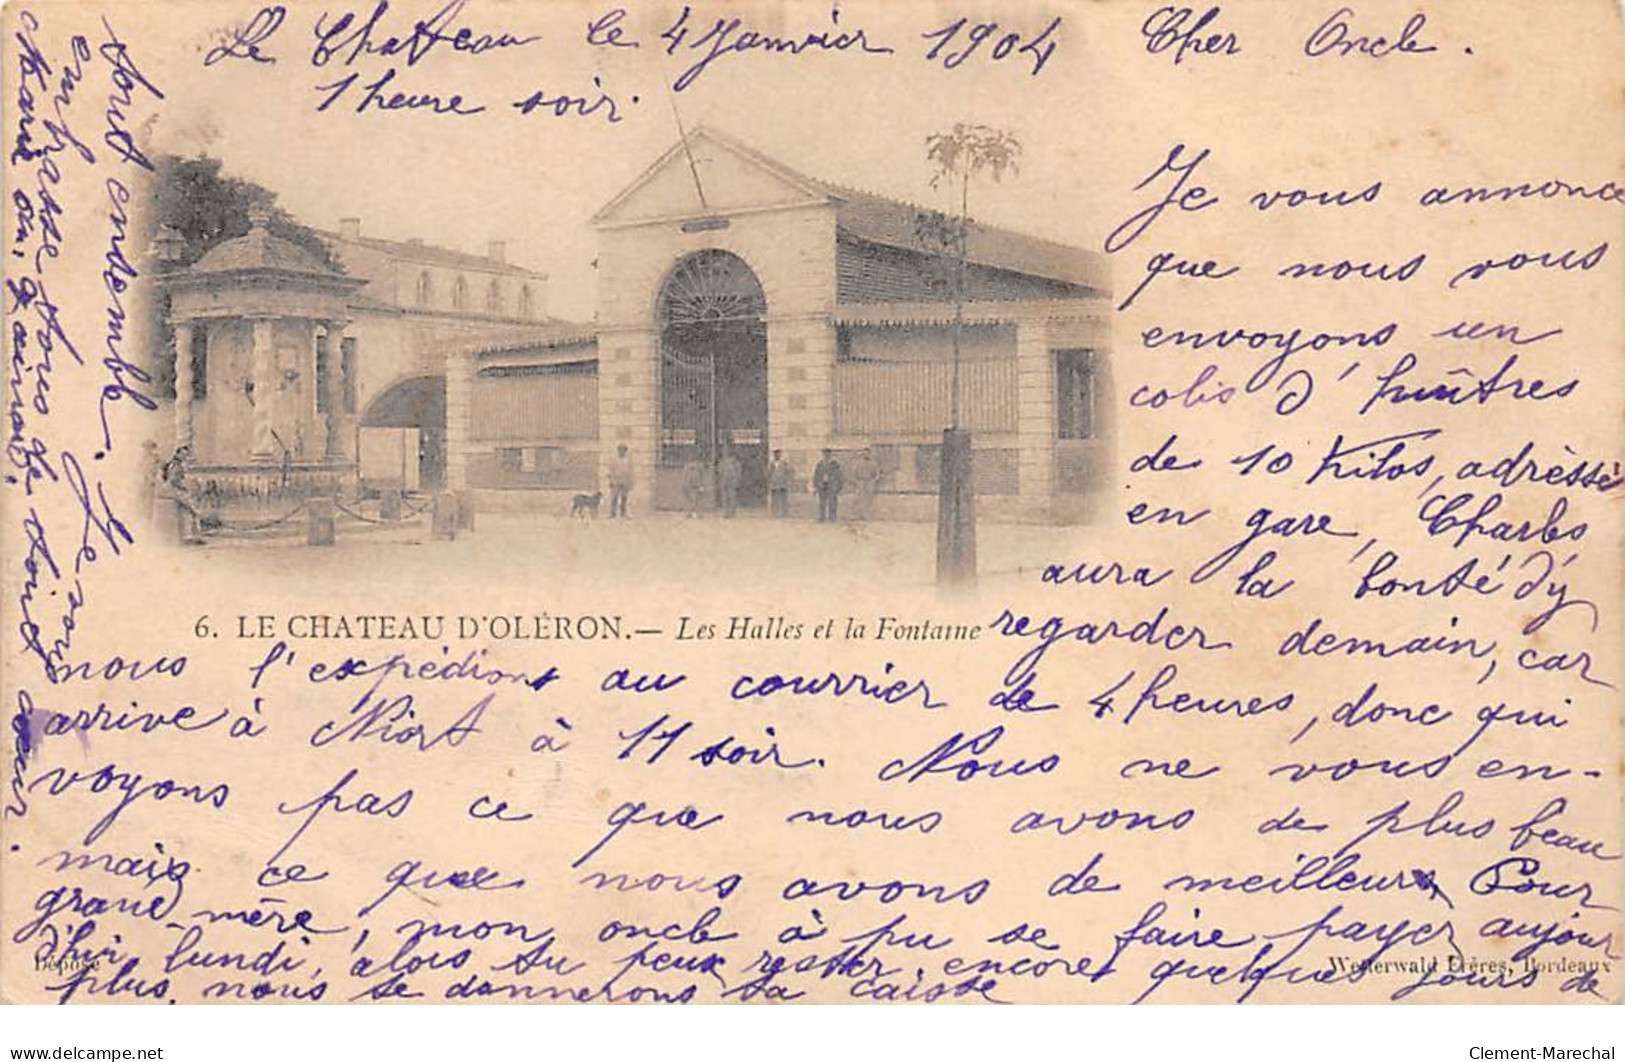 Le Chateau le 4 Janvier 1904 Cher Oncle.
1 heure soir.
Je vous annonce
que nous vous
envoyons un
colis d'huîtres
de 10 Kilos, adrèssé
en gare, Charles
aura la bonté d'y
regarder demain, car
nous l'expédions au courrier de 4 heures, donc qui
arrive à Niort à 11 soir. Nous ne vous en-
voyons pas ce que nous avons de plus beau
mais ce que nous avons de meilleur, Pour
grand-mère, mon oncle à pu se faire payer aujour
d'hui lundi, alors tu peux rester, encore quelques jours de
plus, nous te donnerons ta caisse
tout endemble. Je vous
embrasse tous de tout coeur.
Marie
6. LE CHATEAU D'OLÉRON.— Les Halles et la Fontaine
Déposé
Wetterwald Frères, Bordeaux
delcampe.net
Clement-Marechal